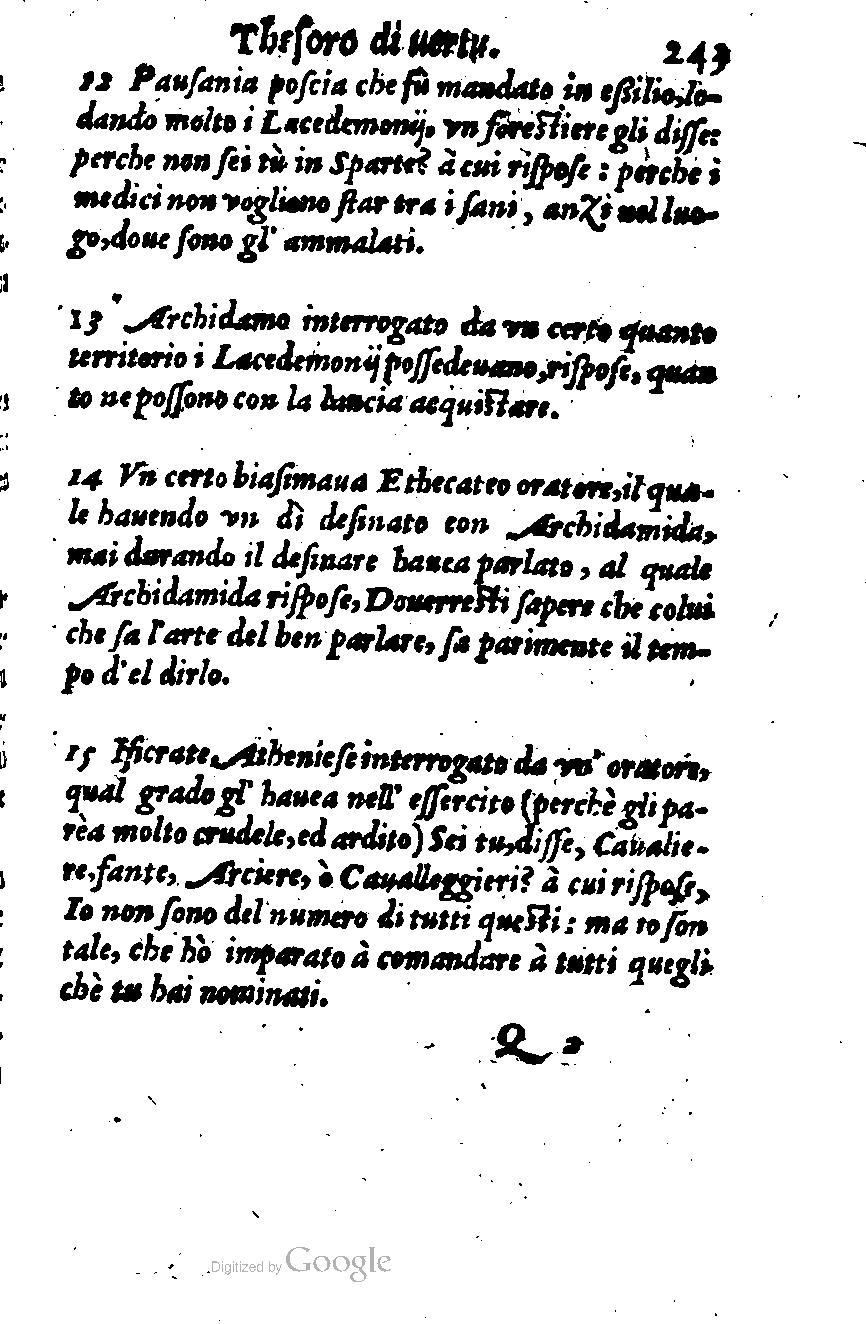 Thesoro di uertu. 243
12 Pausania poscia che fû mandato in essilio, lo-
dando molto i Lacedemonij, vn forestiere gli disse:
perche non sei tù in Sparte? à cui rispose: perche i
medici non vogliono star tra i sani, anzi nel luo-
go, doue sono gl' ammalati.
13 Archidamo interrogato da vn certo quanto
territorio i Lacedemonij possedeuano, rispose, quan
to ne possono con la lancia acquistare.
14 Vn certo biasimaua Ethecateo oratore, il qua-
le hauendo vn dì desinato con Archidamida,
mai durando il desinare hauea parlato, al quale
Archidamida rispose, Douerresti sapere che colui
che sa l'arte del ben parlare, sa parimente il tem-
po d'el dirlo.
15 Ificrate Atheniese interrogato da vn' oratore,
qual grado gl' hauea nell' essercito (perchè gli pa-
rèa molto crudele, ed ardito) Sei tu, disse, Caualie-
re, fante, Arciere, ò Caualleggieri? à cui rispose,
Io non sono del numero di tutti questi: ma io son
tale, che hò imparato à comandare à tutti quegli
chè tu hai nominati.
Q 2
Digitized by Google